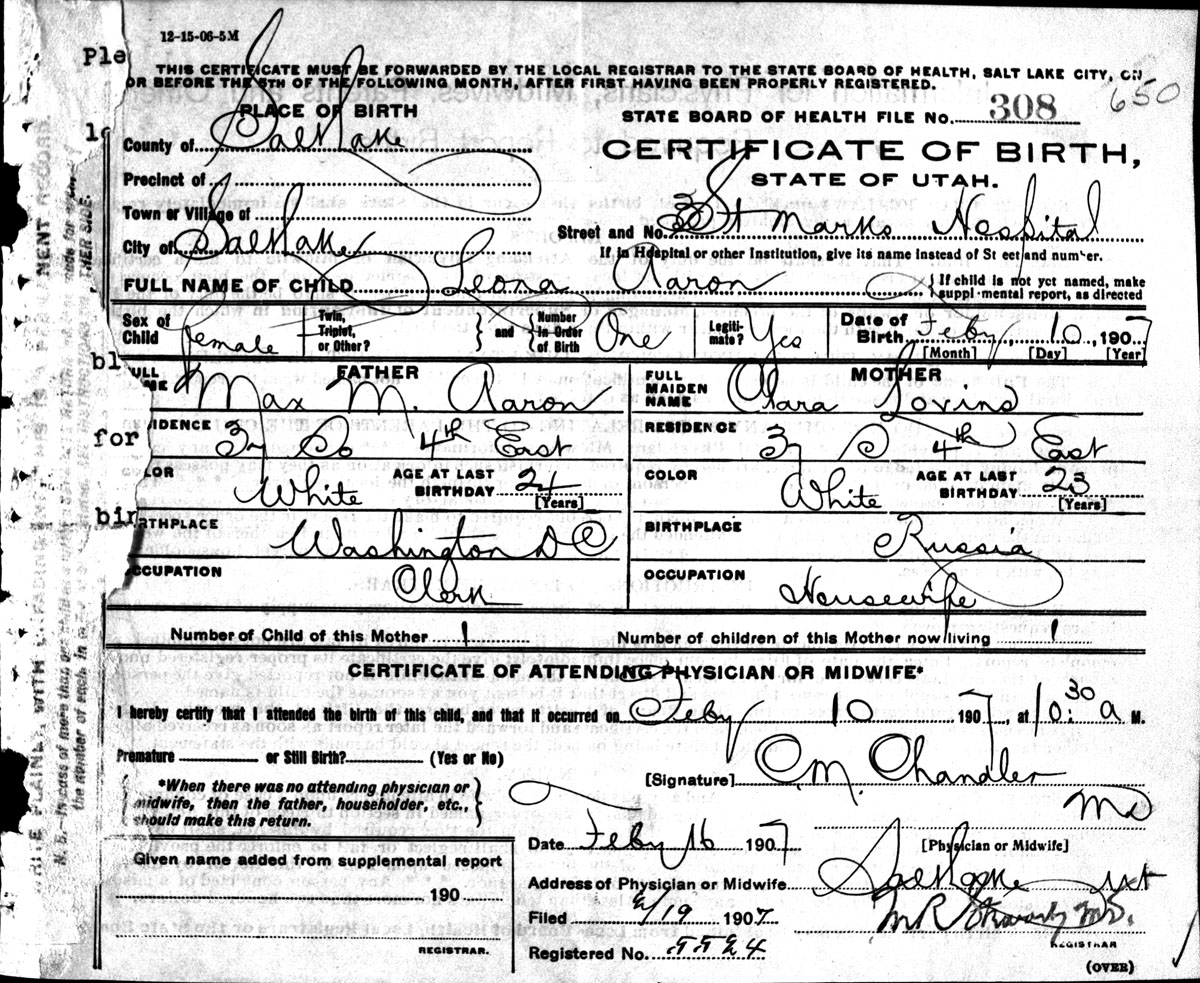 12-15-06-5M
Ple
THIS CERTIFICATE MUST BE FORWARDED BY THE LOCAL REGISTRAR TO THE STATE BOARD OF HEALTH, SALT LAKE CITY, ON
OR BEFORE THE 5TH OF THE FOLLOWING MONTH, AFTER FIRST HAVING BEEN PROPERLY REGISTERED.
650
PLACE OF BIRTH
STATE BOARD OF HEALTH FILE No. 308
County of Salt Lake
CERTIFICATE OF BIRTH,
STATE OF UTAH.
Precinct of
Town or Village of
Street and No. St Marks Hospital
City of Salt Lake
If in Hospital or other Institution, give its name instead of St eet and number.
FULL NAME OF CHILD Leona Aaron
If child is not yet named, make
suppl mental report, as directed
Sex of Child female
Twin, Triplet, or Other?
and
Number in Order of Birth One
Legiti-mate? Yes
Date of Birth Feby 10, 1907
[Month] [Day] [Year]
bl
FATHER
MOTHER
Max M. Aaron
FULL MAIDEN NAME Clara Lovins
for
IDENCE 37 So 4th East
RESIDENCE 37 S 4th East
White
AGE AT LAST BIRTHDAY 24
[Years]
COLOR White
AGE AT LAST BIRTHDAY 23
[Years]
bir
RTHPLACE Washington DC
BIRTHPLACE Russia
CCUPATION Clerk
OCCUPATION Housewife
Number of Child of this Mother 1
Number of children of this Mother now living 1
CERTIFICATE OF ATTENDING PHYSICIAN OR MIDWIFE*
I hereby certify that I attended the birth of this child, and that it occurred on Feby 10 1907, at 10:30 a M.
Premature or Still Birth? (Yes or No)
[Signature] C. M. Chandler
MD
*When there was no attending physician or
midwife, then the father, householder, etc.,
should make this return.
Date Feby 16 1907
[Physician or Midwife]
Given name added from supplemental report
190
REGISTRAR.
Address of Physician or Midwife Salt Lake Ut
Filed 2/19 1907
REGISTRAR
Registered No. 5524
(OVER)